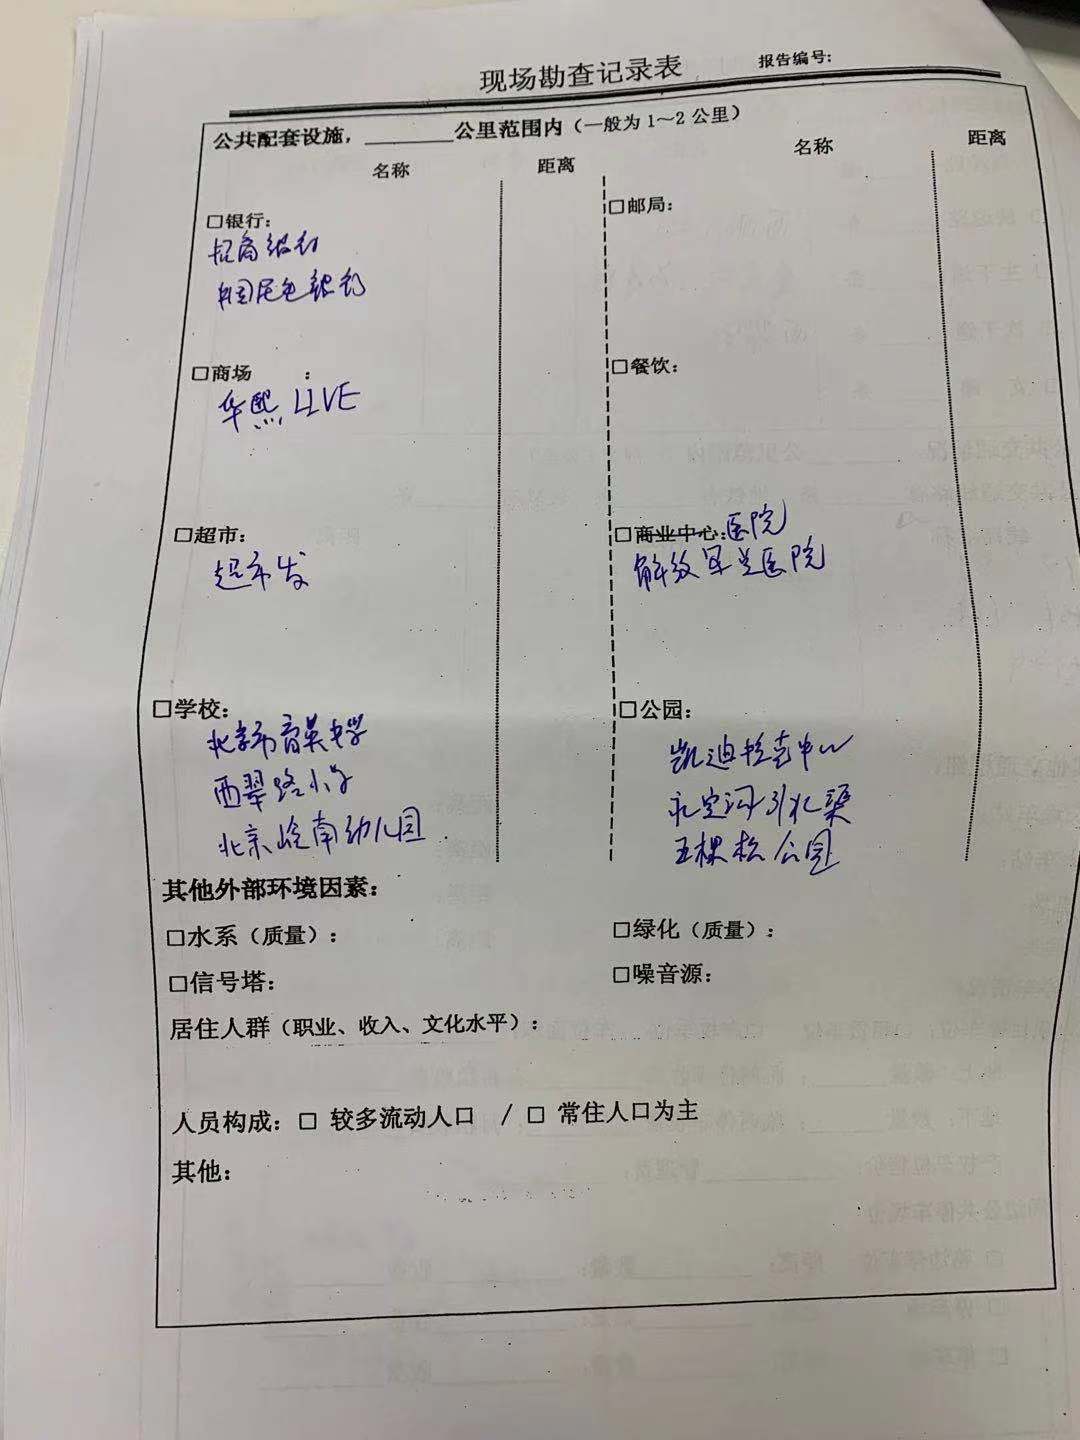 现场勘查记录表 报告编号:
公共配套设施，________公里范围内（一般为1～2公里）
名称 距离 名称 距离
□银行:
招商银行
中国民生银行
□邮局:
□商场 :
华熙LIVE
□餐饮:
□超市:
超市发
□商业中心:医院
解放军总医院
□学校:
北京市育英中学
西翠路小学
北京岭南幼儿园
□公园:
凯迪拉克中心
永定河引水渠
五棵松公园
其他外部环境因素:
□水系（质量）: □绿化（质量）:
□信号塔: □噪音源:
居住人群（职业、收入、文化水平）:
人员构成: □ 较多流动人口 / □ 常住人口为主
其他: